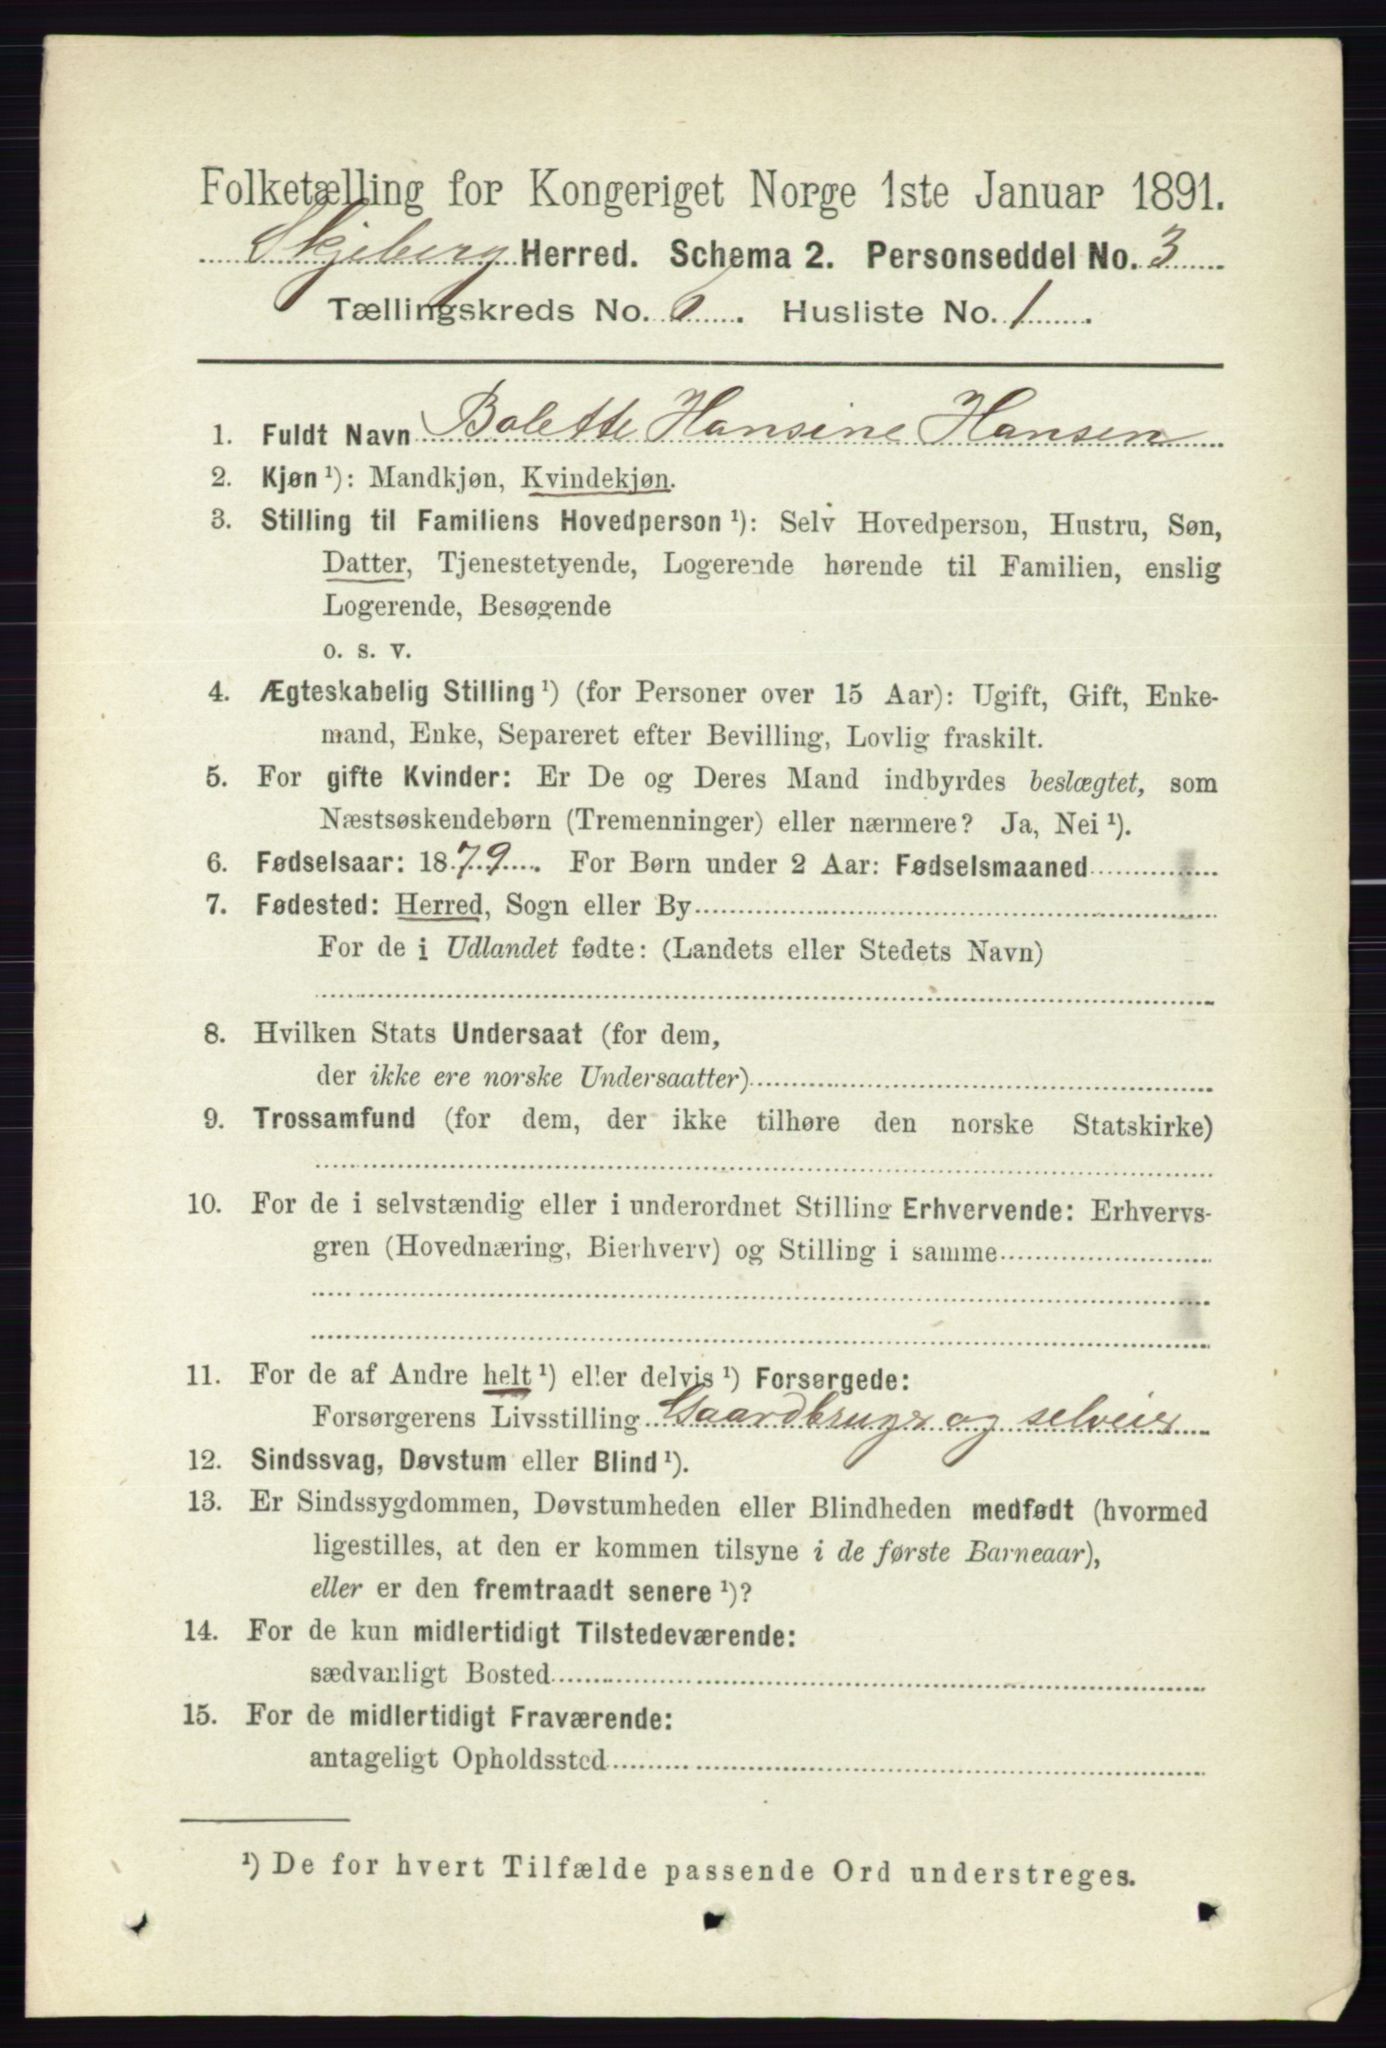 Folketælling for Kongeriget Norge 1ste Januar 1891.
Skjeberg Herred. Schema 2. Personseddel No. 3
Tællingskreds No. 6. Husliste No. 1.
1. Fuldt Navn Bolette Hansine Hansen
2. Kjøn ¹): Mandkjøn, Kvindekjøn.
3. Stilling til Familiens Hovedperson ¹): Selv Hovedperson, Hustru, Søn,
Datter, Tjenestetyende, Logerende hørende til Familien, enslig
Logerende, Besøgende
o. s. v.
4. Ægteskabelig Stilling ¹) (for Personer over 15 Aar): Ugift, Gift, Enke-
mand, Enke, Separeret efter Bevilling, Lovlig fraskilt.
5. For gifte Kvinder: Er De og Deres Mand indbyrdes beslægtet, som
Næstsøskendebørn (Tremenninger) eller nærmere? Ja, Nei ¹).
6. Fødselsaar: 1879. For Børn under 2 Aar: Fødselsmaaned
7. Fødested: Herred, Sogn eller By
For de i Udlandet fødte: (Landets eller Stedets Navn)
8. Hvilken Stats Undersaat (for dem,
der ikke ere norske Undersaatter)
9. Trossamfund (for dem, der ikke tilhøre den norske Statskirke)
10. For de i selvstændig eller i underordnet Stilling Erhvervende: Erhvervs-
gren (Hovednæring, Bierhverv) og Stilling i samme
11. For de af Andre helt ¹) eller delvis ¹) Forsørgede:
Forsørgerens Livsstilling Gaardbruger og selveier
12. Sindssvag, Døvstum eller Blind ¹).
13. Er Sindssygdommen, Døvstumheden eller Blindheden medfødt (hvormed
ligestilles, at den er kommen tilsyne i de første Barneaar),
eller er den fremtraadt senere ¹)?
14. For de kun midlertidigt Tilstedeværende:
sædvanligt Bosted
15. For de midlertidigt Fraværende:
antageligt Opholdssted
¹) De for hvert Tilfælde passende Ord understreges.